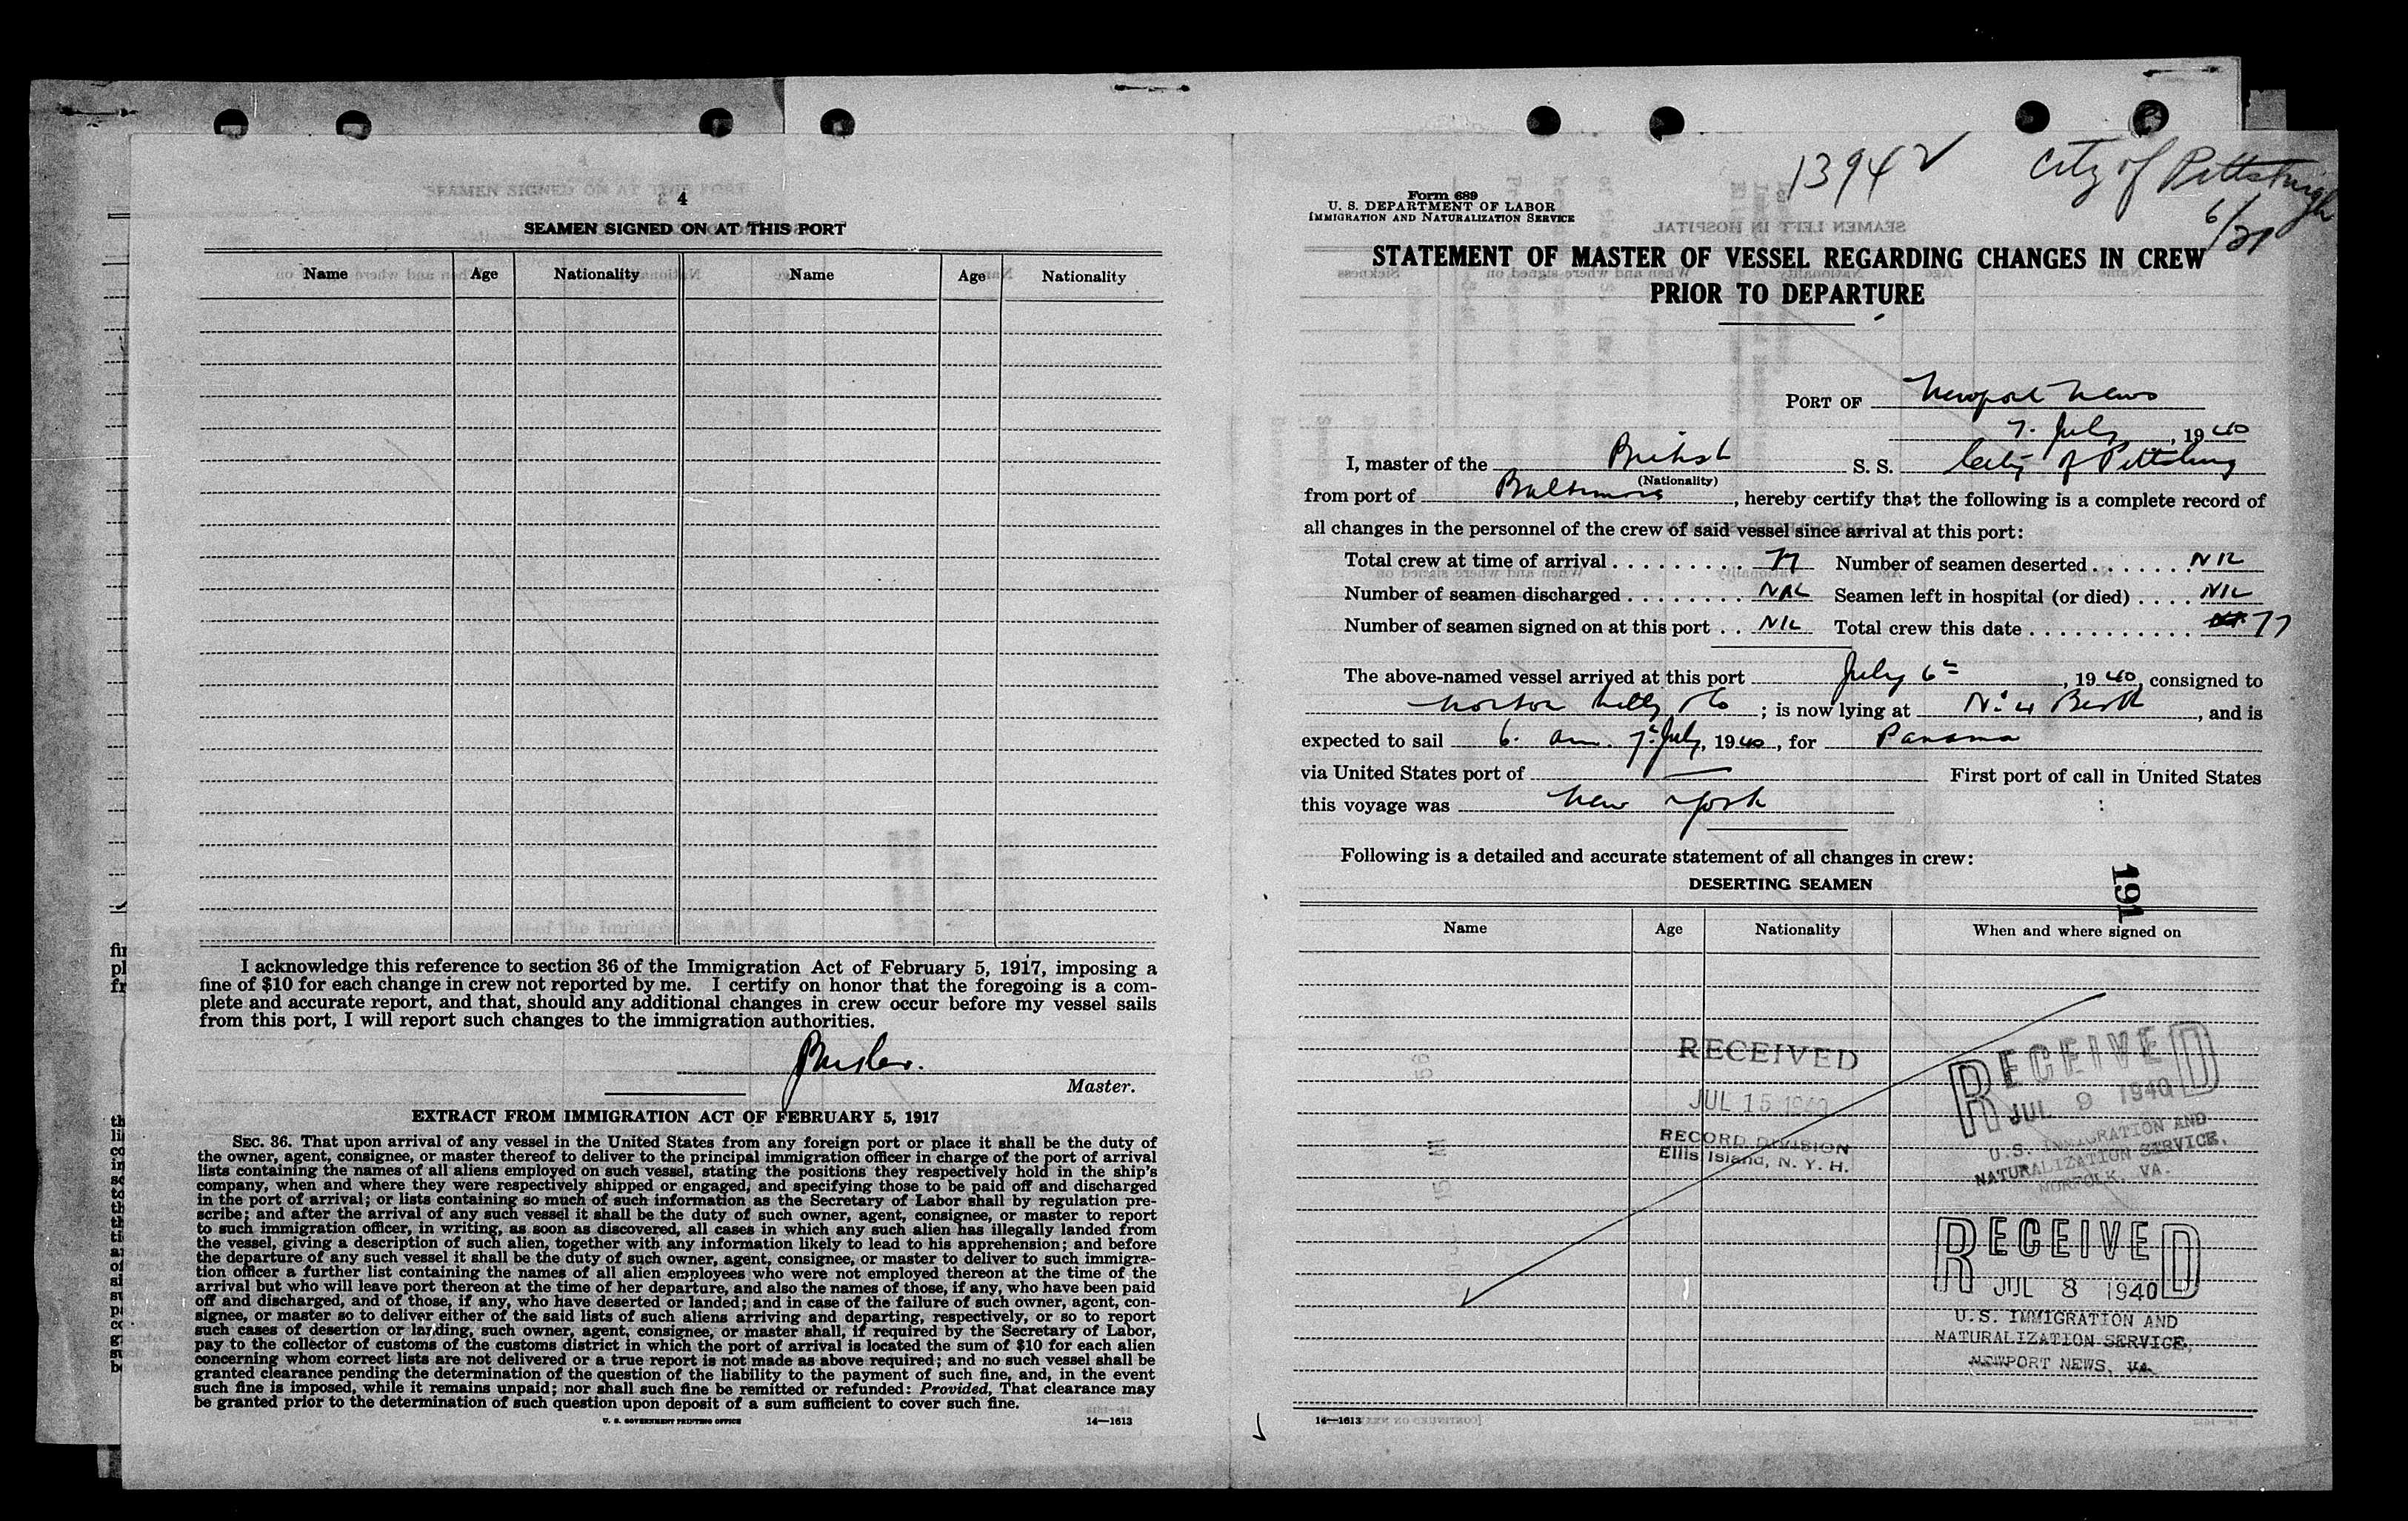 4
SEAMEN SIGNED ON AT THIS PORT
Name Age Nationality Name Age Nationality
I acknowledge this reference to section 36 of the Immigration Act of February 5, 1917, imposing a
fine of $10 for each change in crew not reported by me. I certify on honor that the foregoing is a com-
plete and accurate report, and that, should any additional changes in crew occur before my vessel sails
from this port, I will report such changes to the immigration authorities.
Master.
EXTRACT FROM IMMIGRATION ACT OF FEBRUARY 5, 1917
SEC. 36. That upon arrival of any vessel in the United States from any foreign port or place it shall be the duty of
the owner, agent, consignee, or master thereof to deliver to the principal immigration officer in charge of the port of arrival
lists containing the names of all aliens employed on such vessel, stating the positions they respectively hold in the ship's
company, when and where they were respectively shipped or engaged, and specifying those to be paid off and discharged
in the port of arrival; or lists containing so much of such information as the Secretary of Labor shall by regulation pre-
scribe; and after the arrival of any such vessel it shall be the duty of such owner, agent, consignee, or master to report
to such immigration officer, in writing, as soon as discovered, all cases in which any such alien has illegally landed from
the vessel, giving a description of such alien, together with any information likely to lead to his apprehension; and before
the departure of any such vessel it shall be the duty of such owner, agent, consignee, or master to deliver to such immigra-
tion officer a further list containing the names of all alien employees who were not employed thereon at the time of the
arrival but who will leave port thereon at the time of her departure, and also the names of those, if any, who have been paid
off and discharged, and of those, if any, who have deserted or landed; and in case of the failure of such owner, agent, con-
signee, or master so to deliver either of the said lists of such aliens arriving and departing, respectively, or so to report
such cases of desertion or landing, such owner, agent, consignee, or master shall, if required by the Secretary of Labor,
pay to the collector of customs of the customs district in which the port of arrival is located the sum of $10 for each alien
concerning whom correct lists are not delivered or a true report is not made as above required; and no such vessel shall be
granted clearance pending the determination of the question of the liability to the payment of such fine, and, in the event
such fine is imposed, while it remains unpaid; nor shall such fine be remitted or refunded: Provided, That clearance may
be granted prior to the determination of such question upon deposit of a sum sufficient to cover such fine.
U. S. GOVERNMENT PRINTING OFFICE 14—1613
1394 City of Pittsburgh
6/21
Form 689
U. S. DEPARTMENT OF LABOR
IMMIGRATION AND NATURALIZATION SERVICE
STATEMENT OF MASTER OF VESSEL REGARDING CHANGES IN CREW
PRIOR TO DEPARTURE
PORT OF Newport News
7. July, 1940
I, master of the British S. S. City of Pittsburg
(Nationality)
from port of Baltimore, hereby certify that the following is a complete record of
all changes in the personnel of the crew of said vessel since arrival at this port:
Total crew at time of arrival 77 Number of seamen deserted NIL
Number of seamen discharged NIL Seamen left in hospital (or died) NIL
Number of seamen signed on at this port NIL Total crew this date 77
The above-named vessel arrived at this port July 6th, 1940, consigned to
Norton Lilly Co; is now lying at No 4 Berth, and is
expected to sail 6. am. 7th July, 1940, for Panama
via United States port of — First port of call in United States
this voyage was New York
Following is a detailed and accurate statement of all changes in crew:
DESERTING SEAMEN
191
Name Age Nationality When and where signed on
RECEIVED
JUL 15 1940
RECORD DIVISION
Ellis Island, N. Y. H.
RECEIVED
JUL 9 1940
U.S. IMMIGRATION AND
NATURALIZATION SERVICE,
NORFOLK, VA.
RECEIVED
JUL 8 1940
U.S. IMMIGRATION AND
NATURALIZATION SERVICE,
NEWPORT NEWS, VA.
14—1613